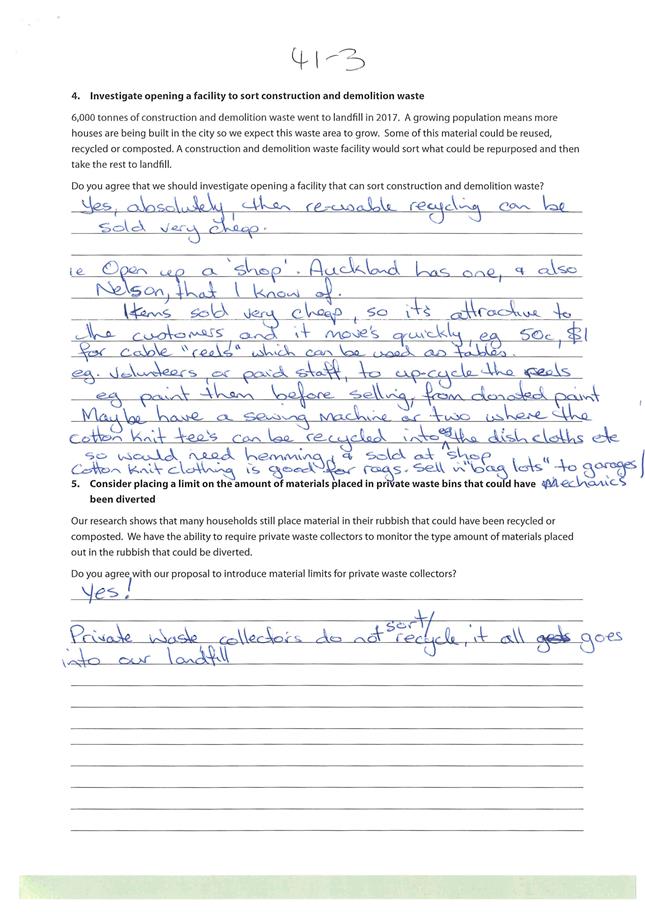 41-3
4. Investigate opening a facility to sort construction and demolition waste
6,000 tonnes of construction and demolition waste went to landfill in 2017. A growing population means more
houses are being built in the city so we expect this waste area to grow. Some of this material could be reused,
recycled or composted. A construction and demolition waste facility would sort what could be repurposed and then
take the rest to landfill.
Do you agree that we should investigate opening a facility that can sort construction and demolition waste?
Yes, absolutely, then re-usable recycling can be
sold very cheap.
ie Open up a 'shop'. Auckland has one, & also
Nelson, that I know of.
Items sold very cheap, so it's attractive to
the customers and it move's quickly, eg 50c, $1
for cable "reels" which can be used as tables.
eg. Volunteers, or paid staff, to up-cycle the reels
eg paint then before selling, from donated paint
Maybe have a sewing machine or two where the
cotton knit tee's can be recycled into the dish cloths etc
so would need hemming, & sold at shop
Cotton Knit clothing is good for rags. Sell in "bag lots" to garages/
mechanics
5. Consider placing a limit on the amount of materials placed in private waste bins that could have
been diverted
Our research shows that many households still place material in their rubbish that could have been recycled or
composted. We have the ability to require private waste collectors to monitor the type amount of materials placed
out in the rubbish that could be diverted.
Do you agree with our proposal to introduce material limits for private waste collectors?
Yes!
Private waste collectors do not sort/recycle, it all goes
into our landfill